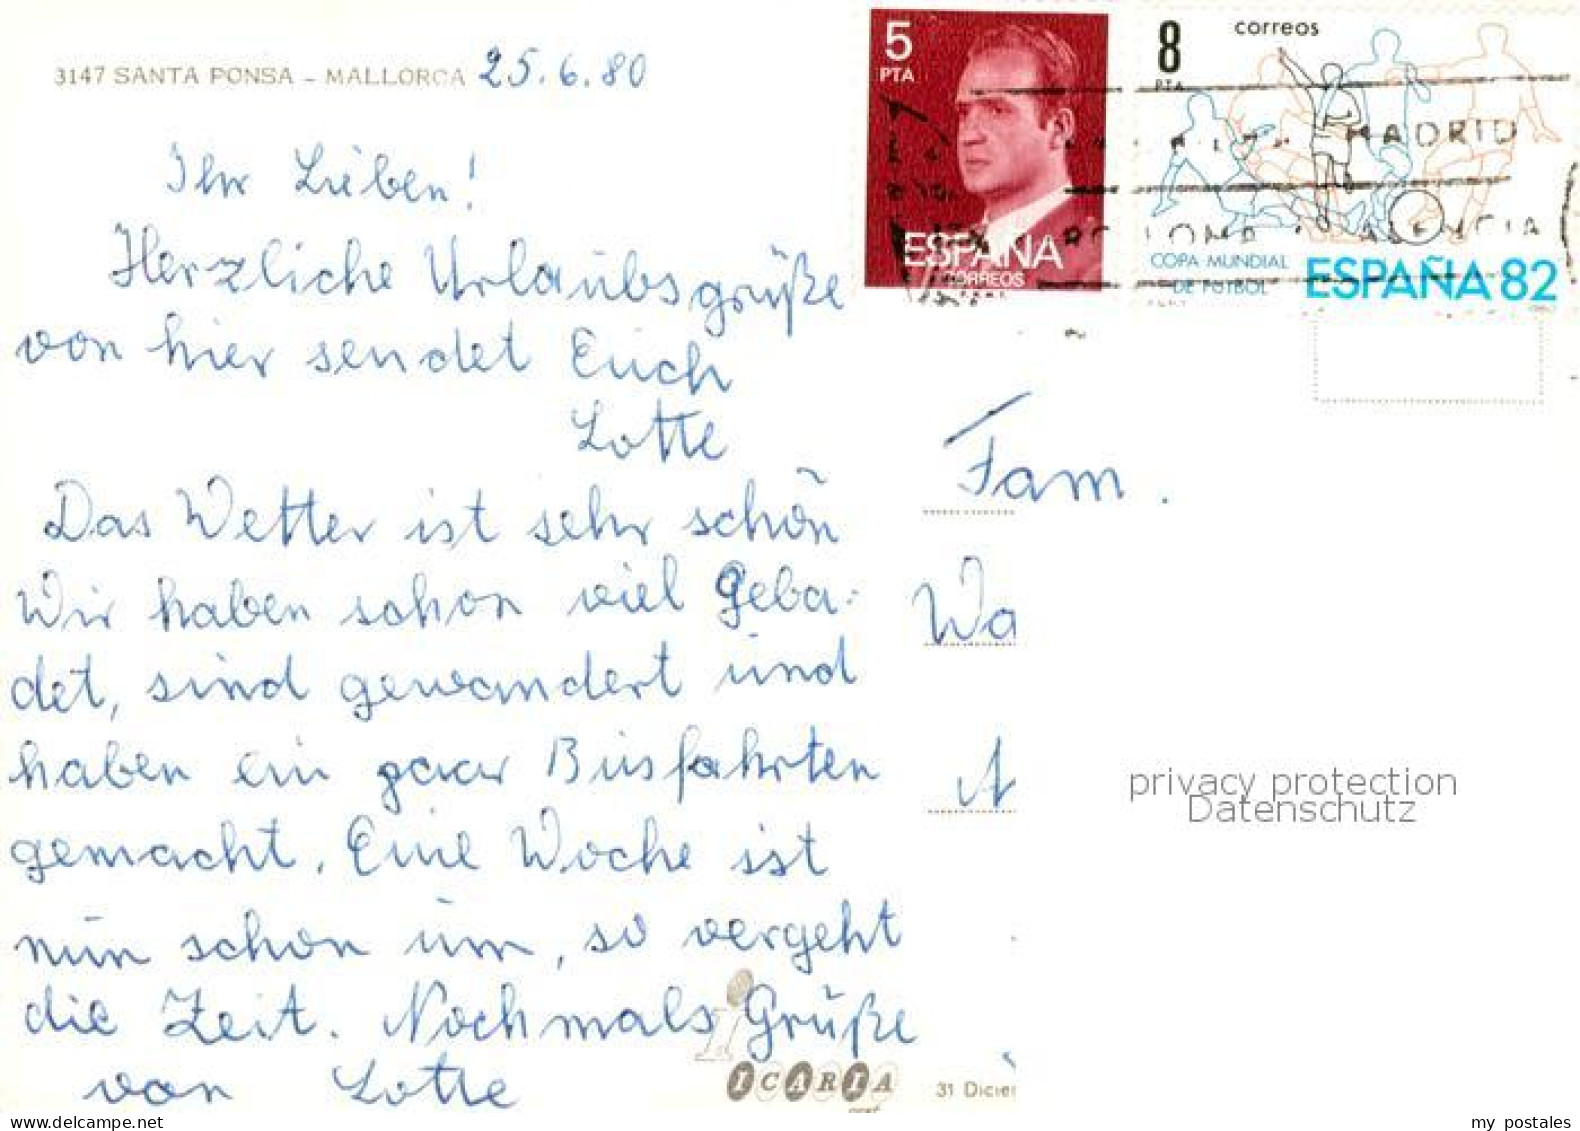 3147 SANTA PONSA - MALLORCA 25.6.80
Ihr Lieben!
Herzliche Urlaubsgrüße
von hier sendet Euch
Lotte
Das Wetter ist sehr schön
Wir haben schon viel geba-
det, sind gewandert und
haben ein paar Busfahrten
gemacht. Eine Woche ist
nun schon um, so vergeht
die Zeit. Nochmals Grüße
von Lotte
ICARIA
5
PTA
ESPAÑA
CORREOS
8
PTA
correos
MADRID
COPA MUNDIAL
DE FUTBOL
ESPAÑA 82
Fam.
Wa
privacy protection
Datenschutz
my postales